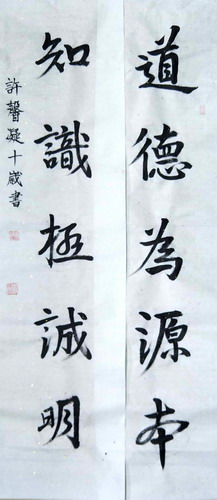 道德為源本
知識極誠明
許馨凝十歲書